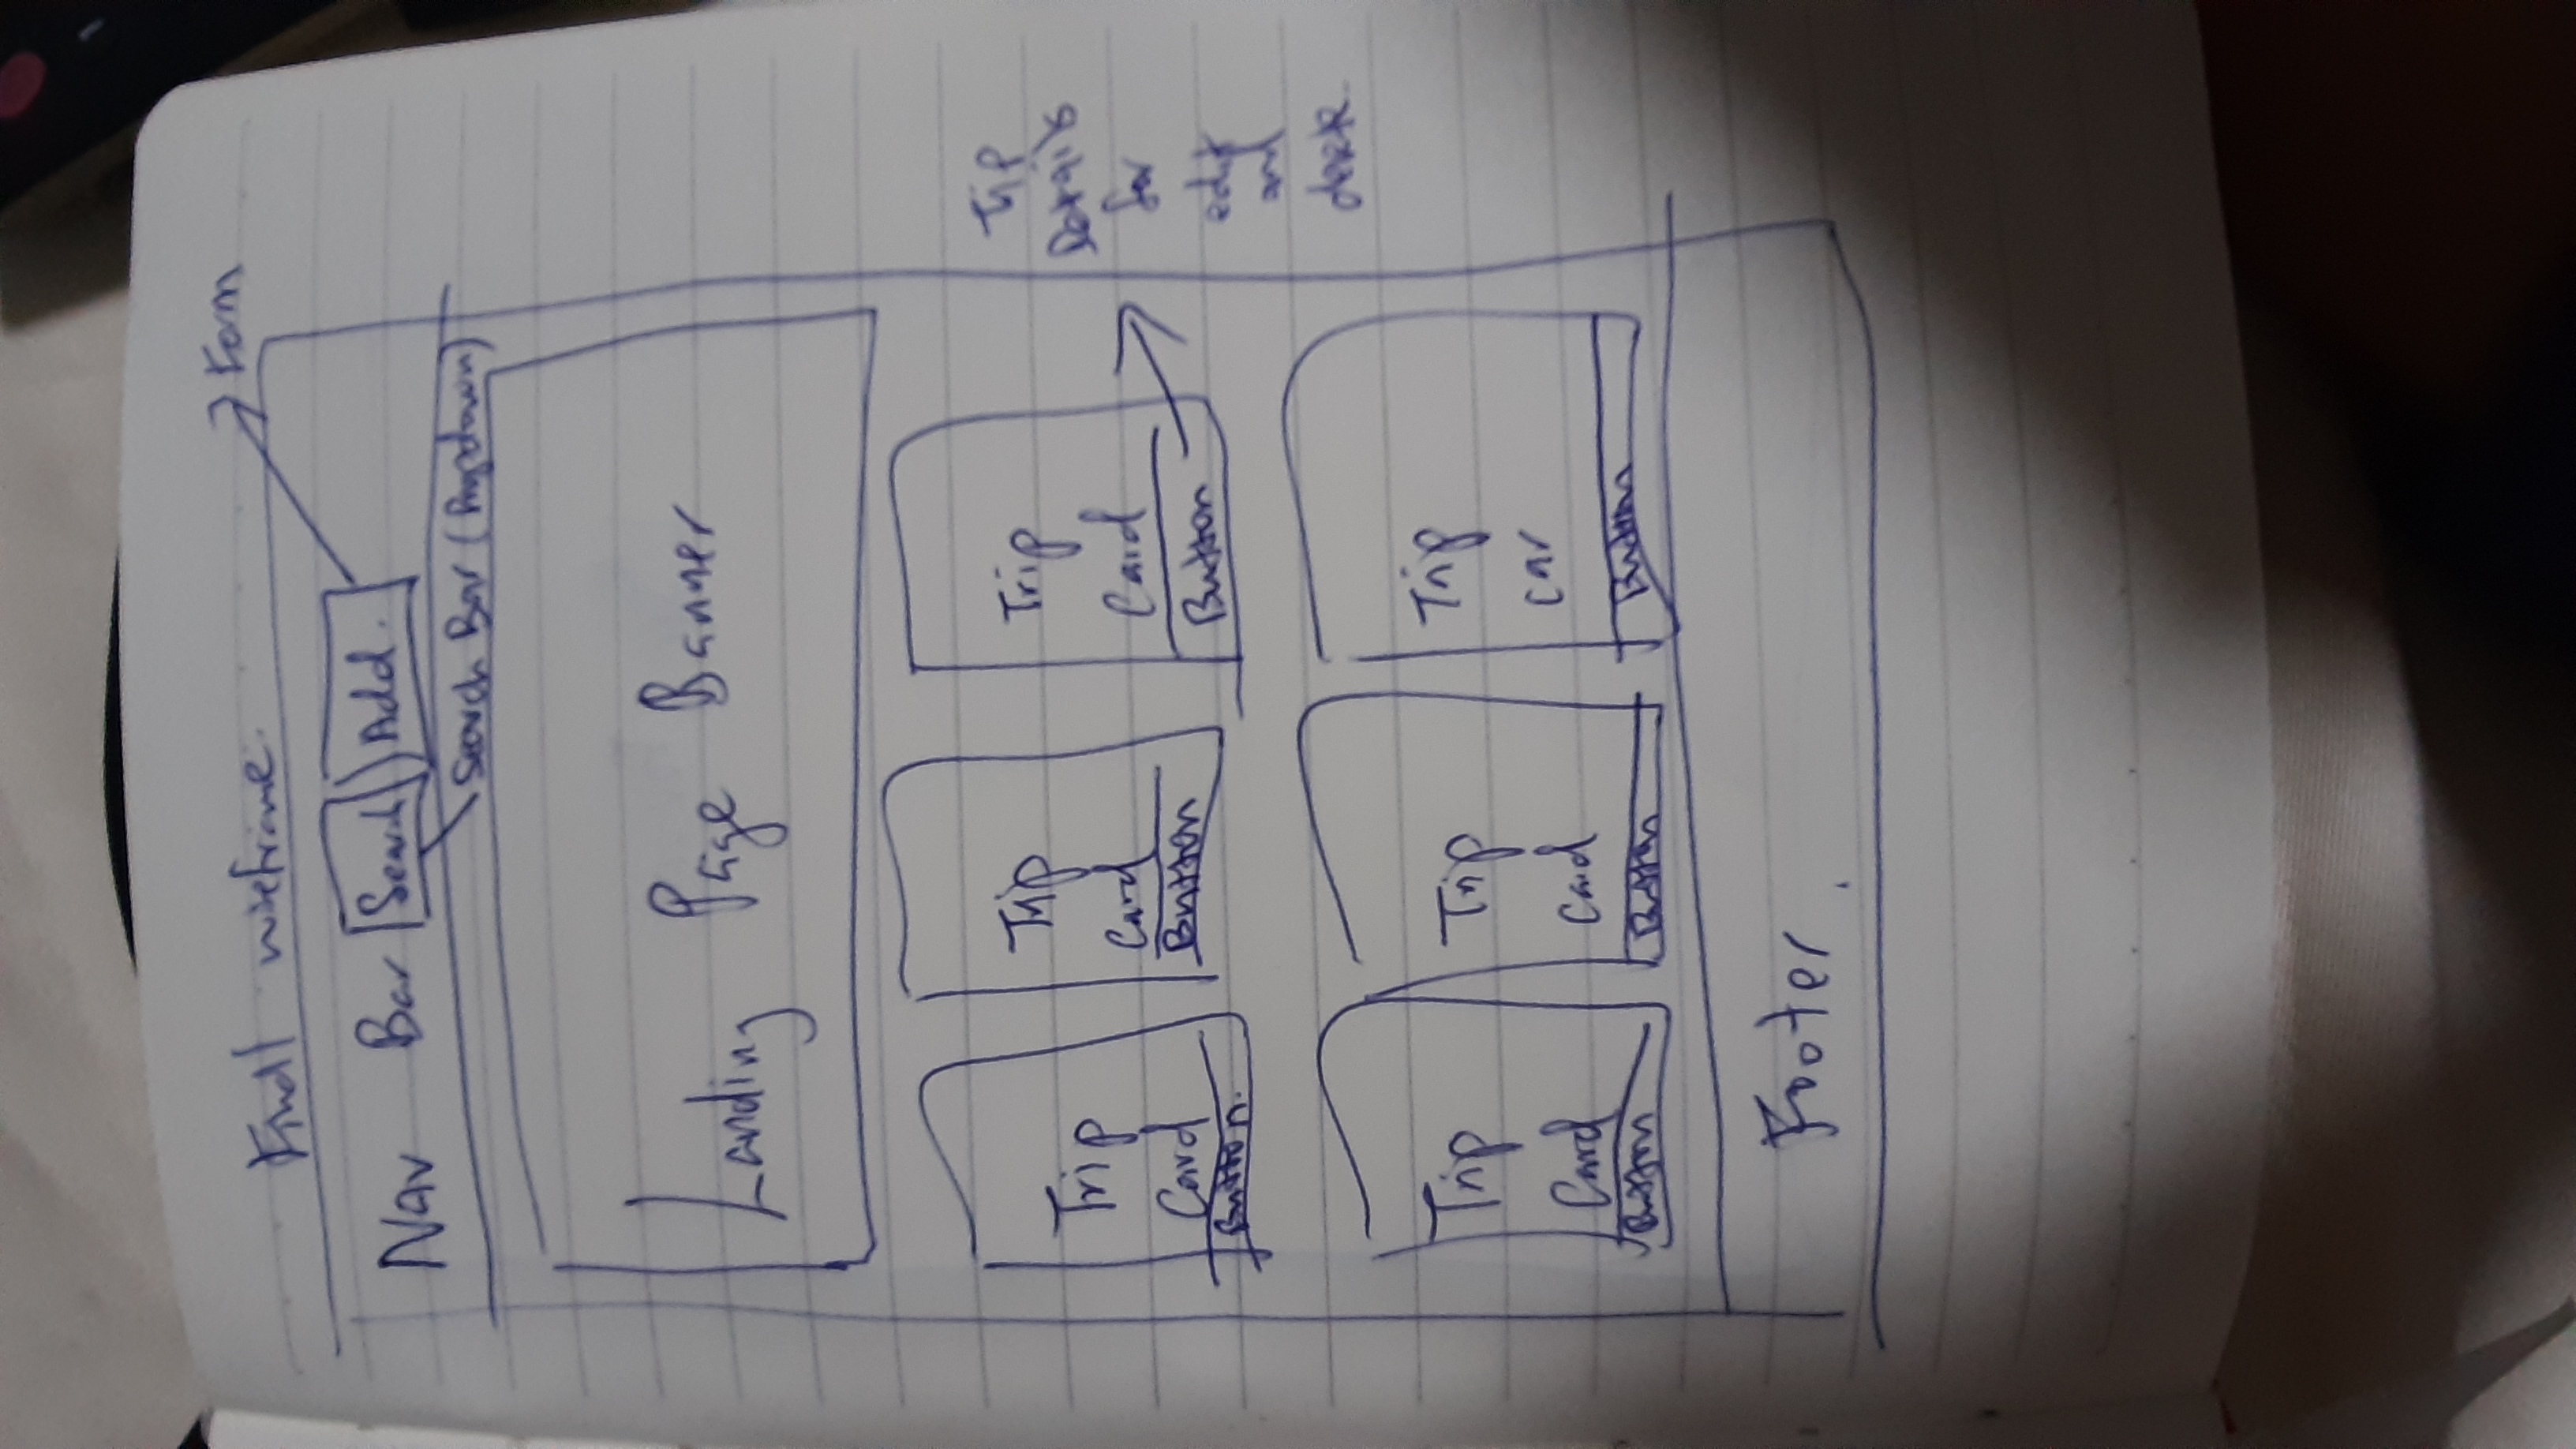 Final wireframe.
Form
Nav Bar Search Add.
Search Bar (Dropdown)
Landing Page Banner
Trip
Card
Button.
Trip
Card
Button
Trip
Card
Button
Trip
Details
for
edit
and
delete.
Trip
Card
Button
Trip
Card
Button
Trip
Car
Button
Footer.